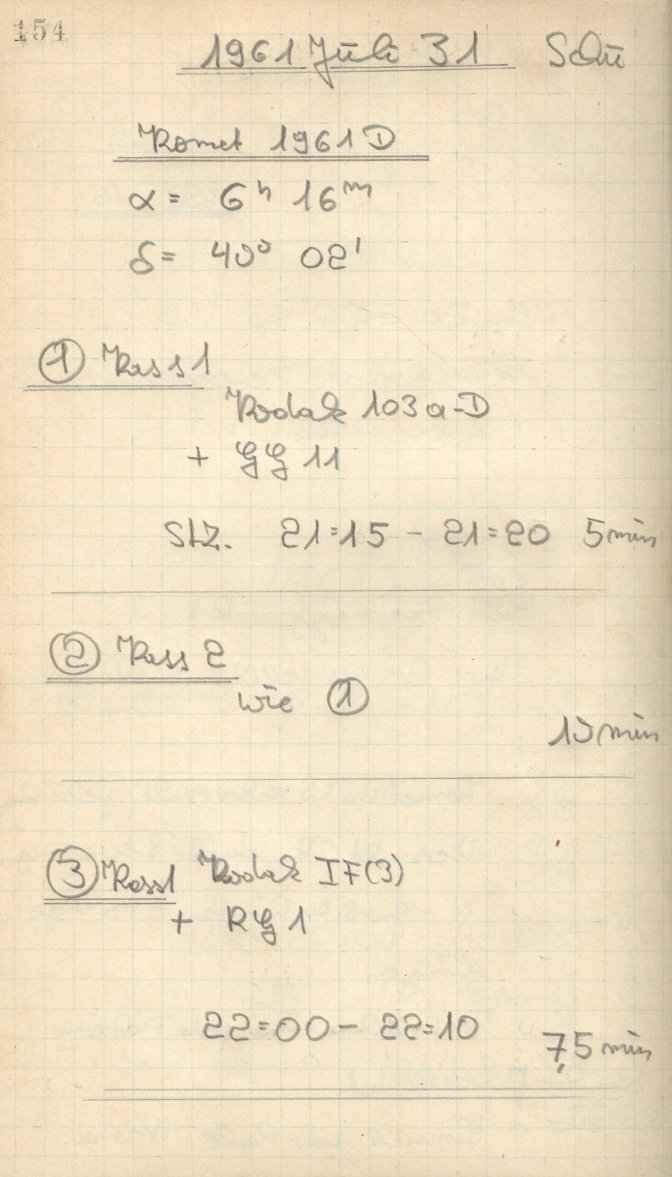 154
1961 Juli 31 Schü
Komet 1961 D
α = 6ʰ 16ᵐ
δ = 40° 02'
① Ross 1
Kodak 103 a-D
+ GG 11
StZ. 21=15 - 21=20 5 min
② Ross 2
wie ①
10 min
③ Ross 1 Kodak IF(3)
+ RG 1
22=00 - 22=10 7,5 min